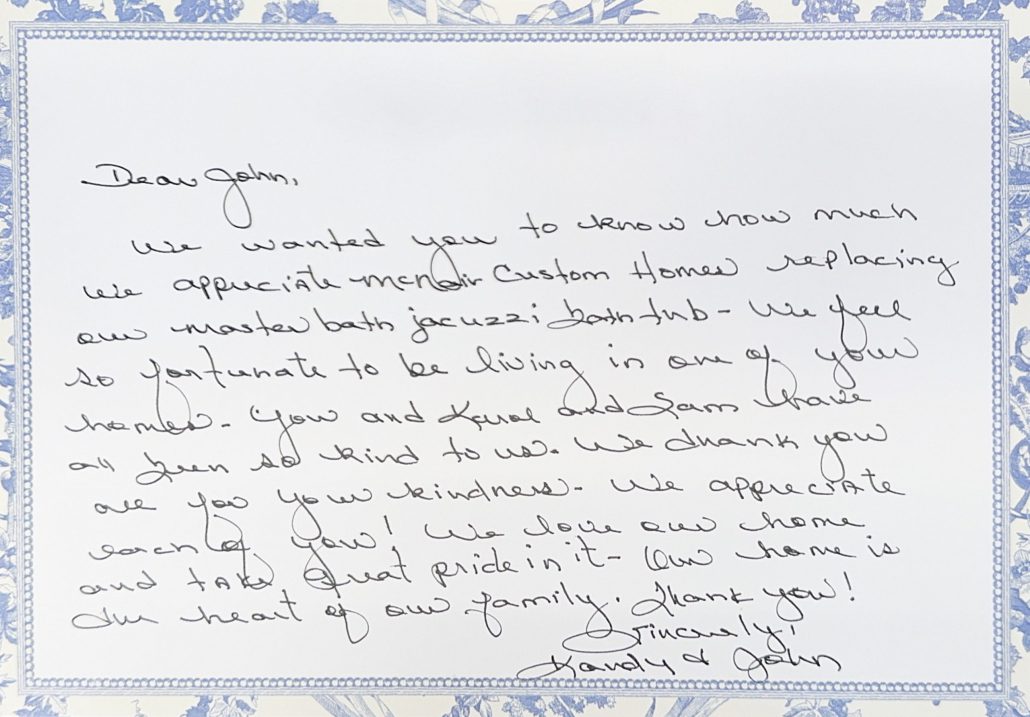 Dear John,
We wanted you to know how much
we appreciate McNair Custom Homes replacing
our master bath jacuzzi bath tub - We feel
so fortunate to be living in one of your
homes - You and Karol and Sam have
all been so kind to us. We thank you
all for your kindness - We appreciate
each of you! We love our home
and take great pride in it - Our home is
the heart of our family. Thank you!
Sincerely,
Kandy & John